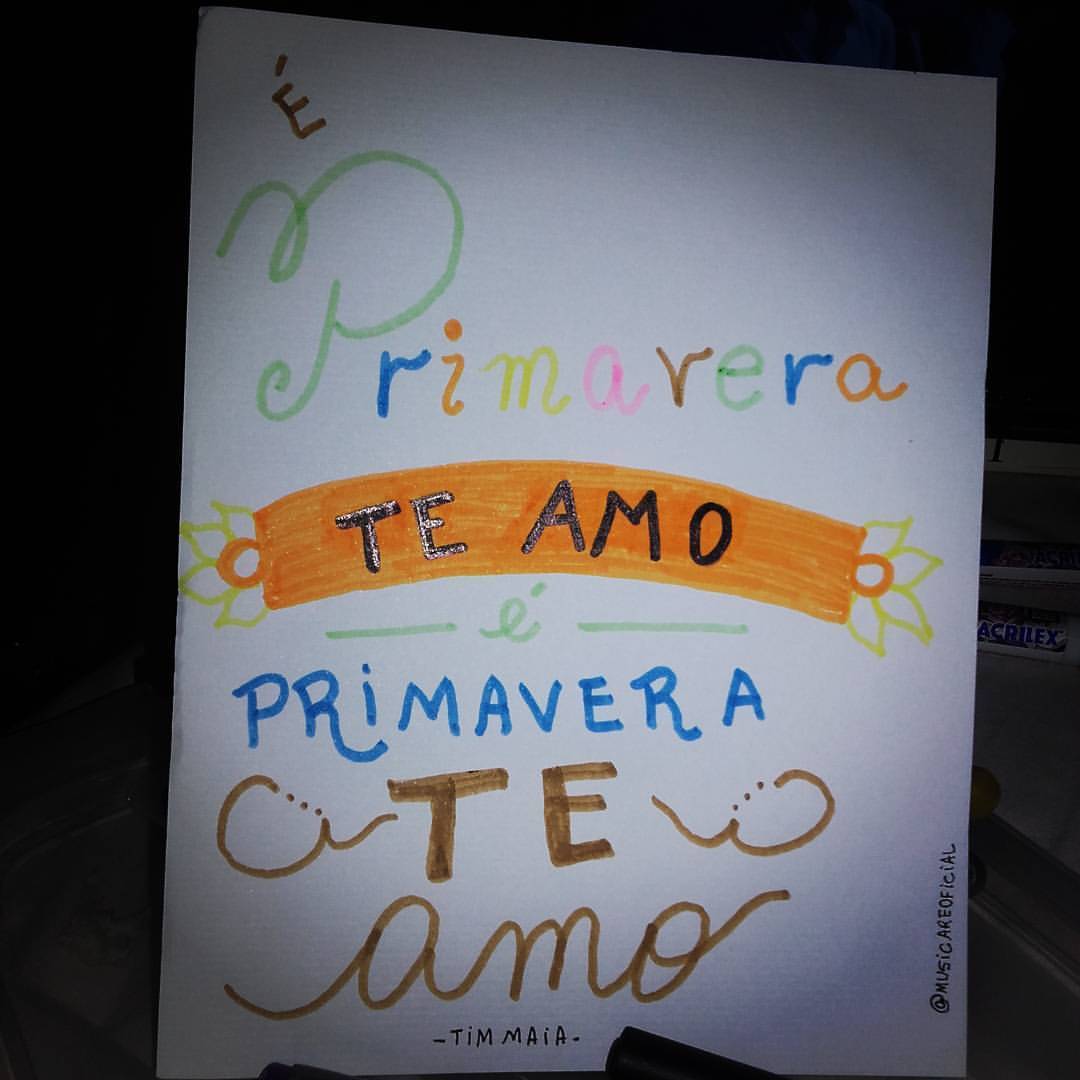 É
Primavera
TE AMO
é
PRiMAVERA
TE
amo
-TiM MAiA-
@MUSiCAREOFiCiAL
ACRILEX